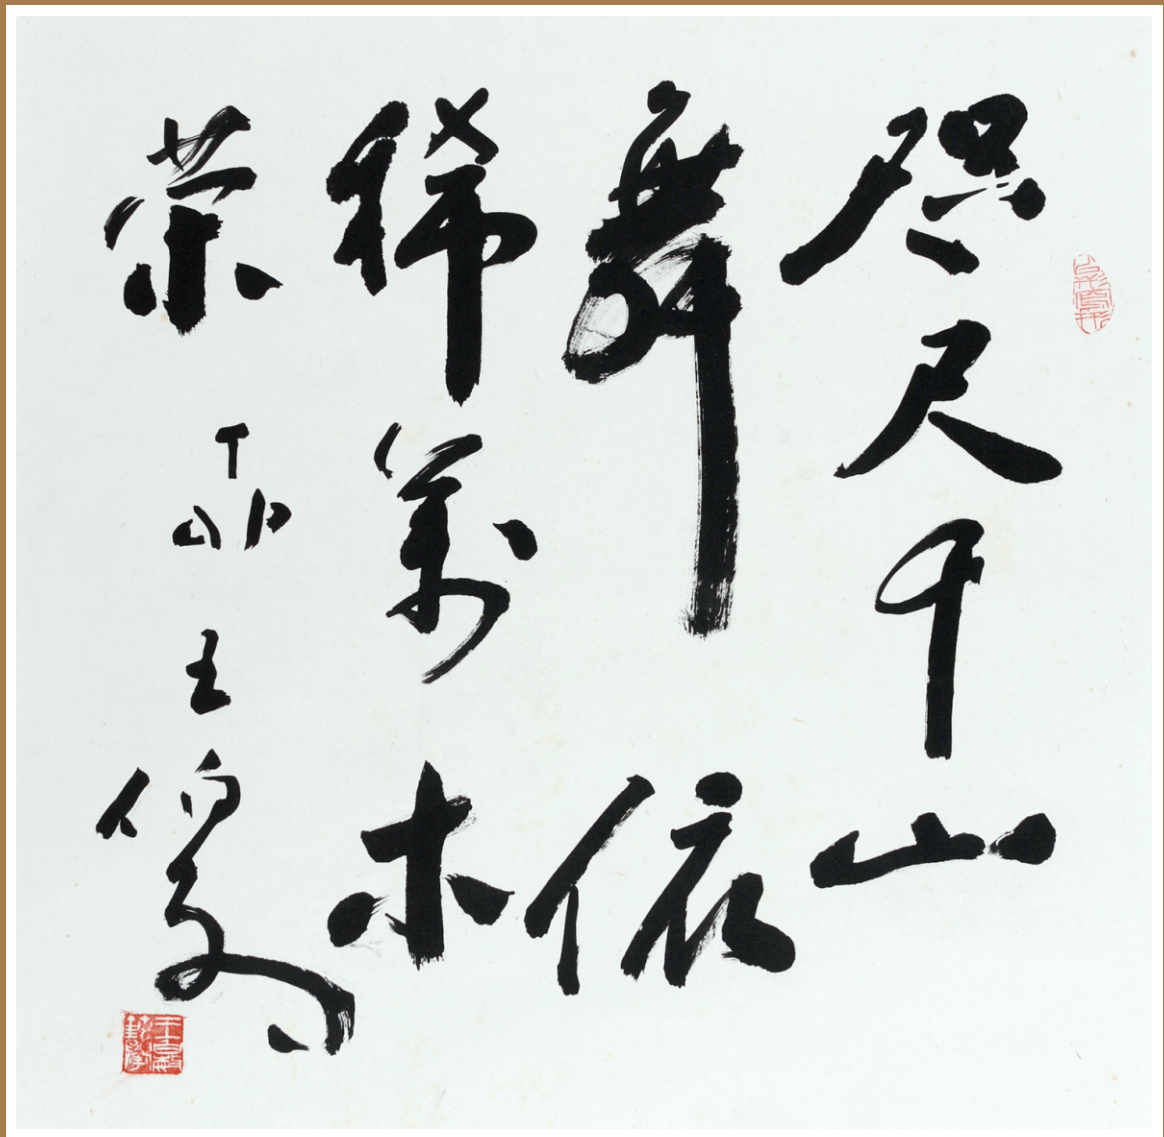 咫尺千山
舞依
稀萬木
荣 丁卯 王伯敏